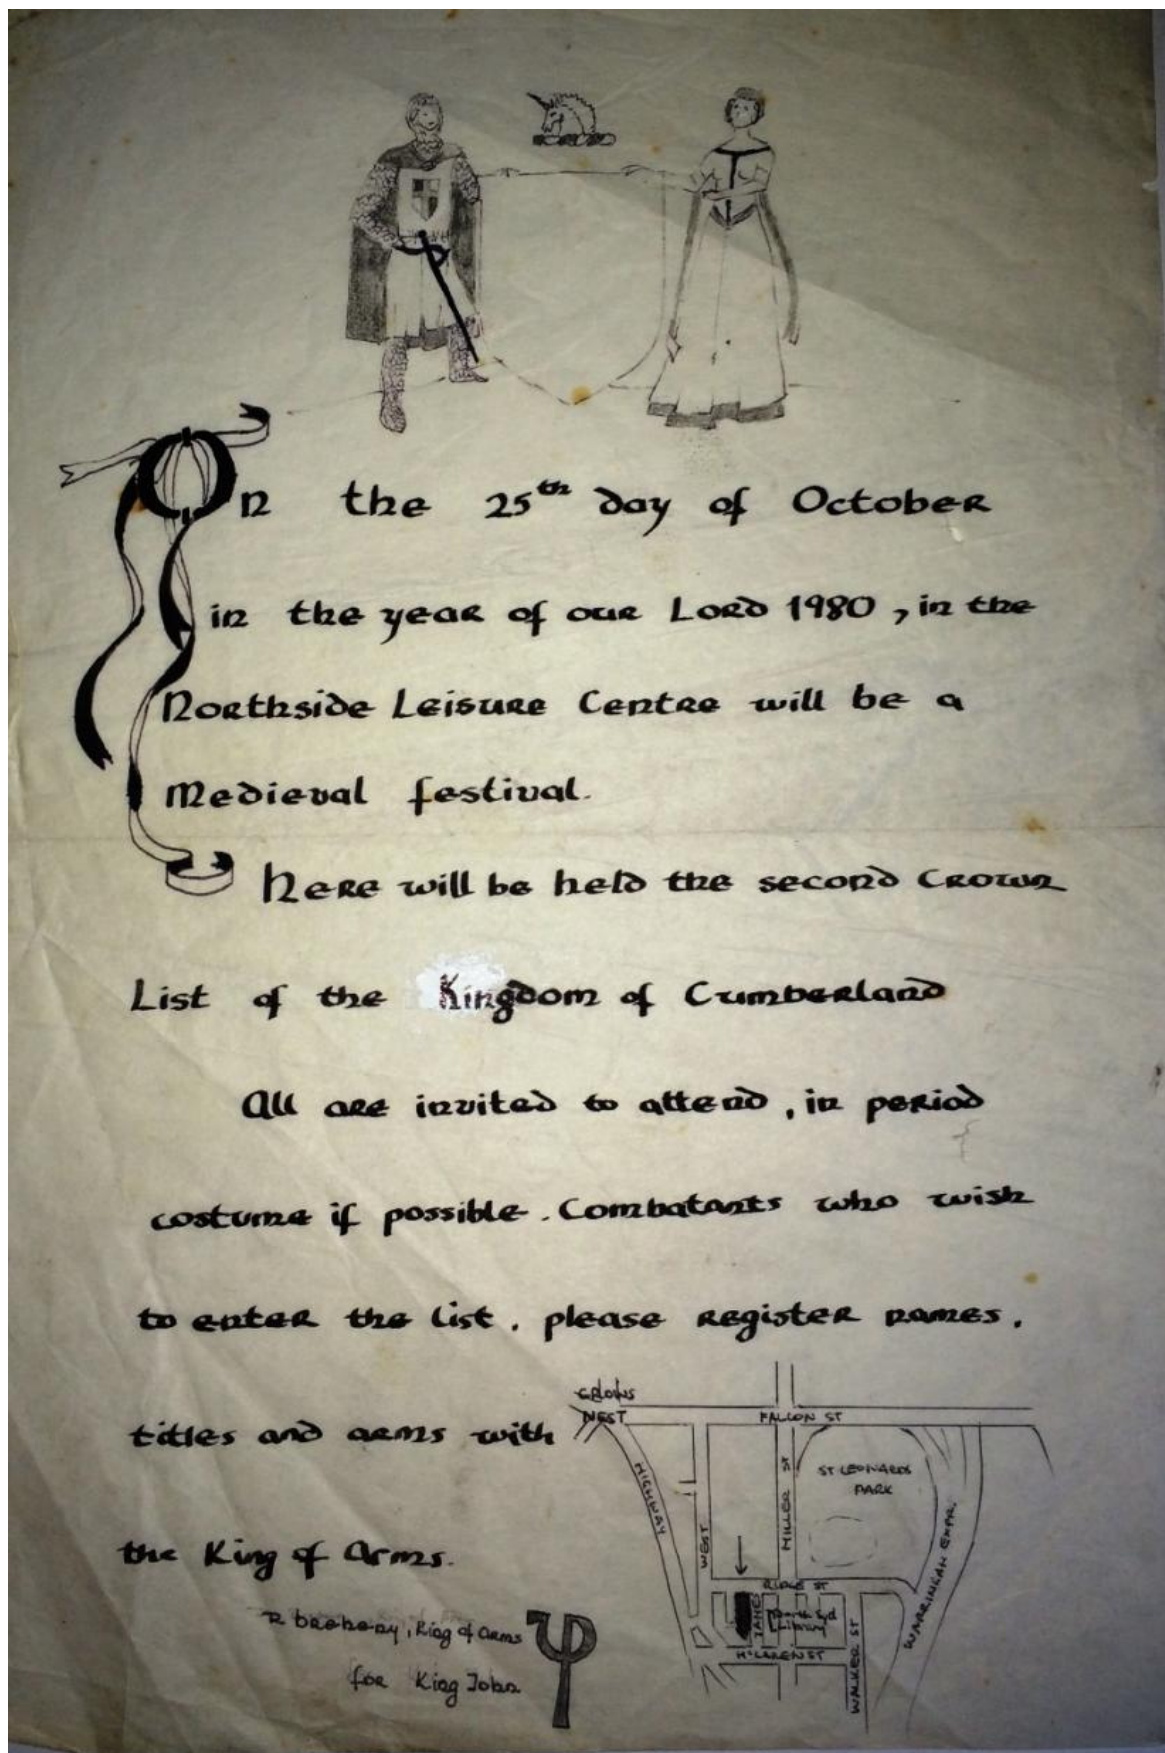 On the 25th day of October
in the year of our Lord 1980, in the
Northside Leisure Centre will be a
Medieval festival.
Here will be held the second Crown
List of the Kingdom of Cumberland
All are invited to attend, in period
costume if possible. Combatants who wish
to enter the list, please register names,
titles and arms with
the King of Arms.
King of Arms
for King John
CROWS
NEST
FALCON ST
HIGHWAY
WEST
MILLER ST
ST LEONARDS
PARK
WARRINGAH EXPR.
RIDGE ST
North Syd
Library
McLAREN ST
WALKER ST